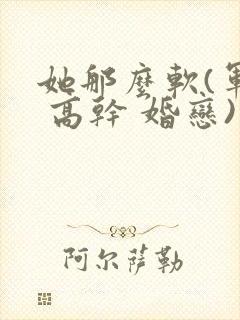 她那麼軟(軍
高幹 婚戀)
阿尔萨勒